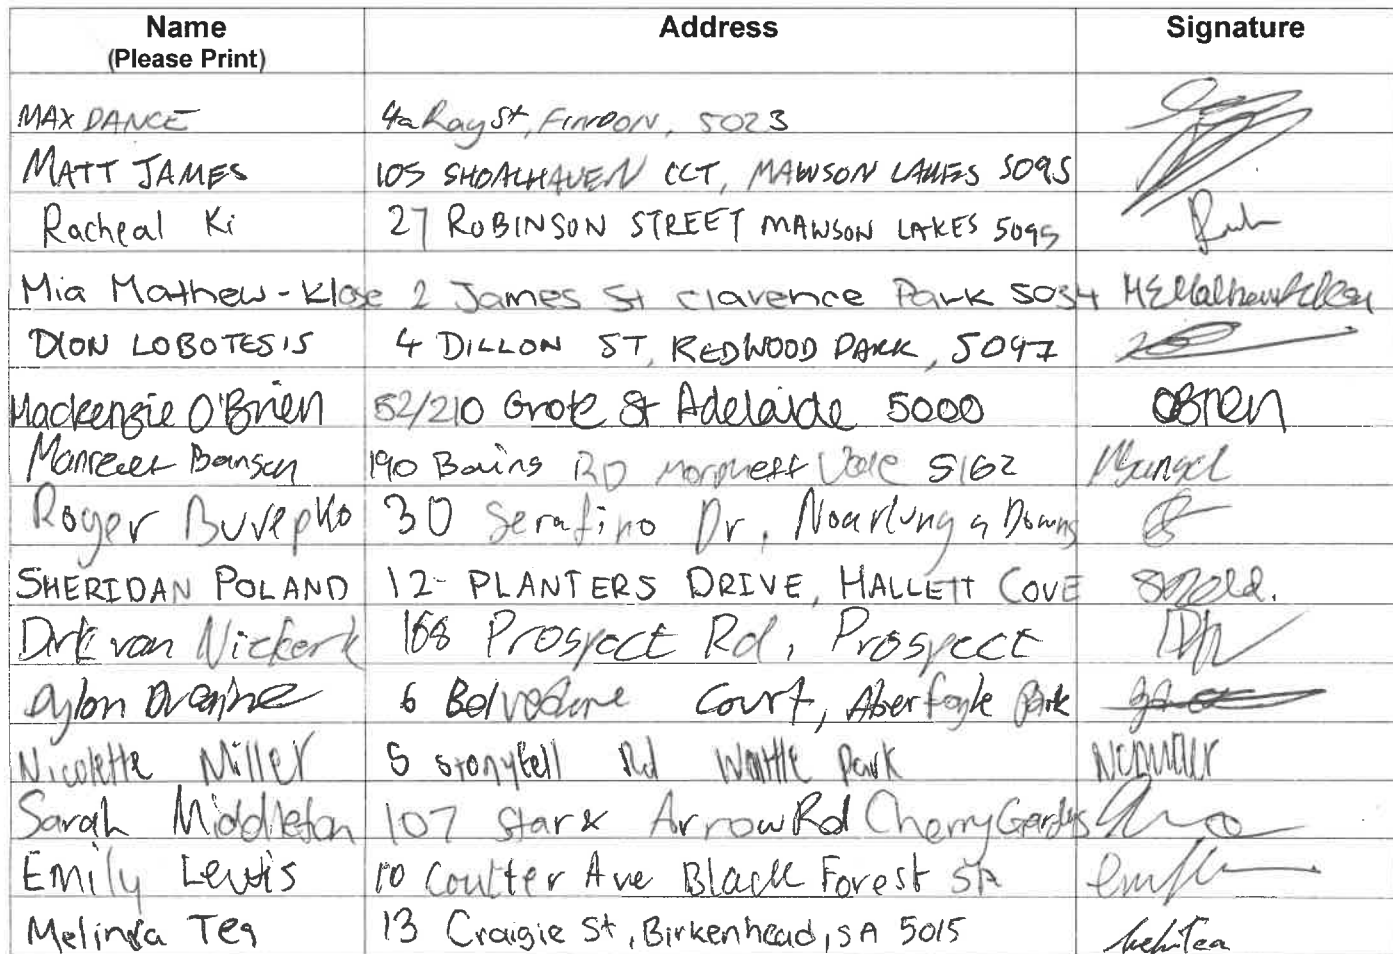 Name Address Signature
(Please Print)
MAX DANCE 4a Ray St, FINDON, 5023
MATT JAMES 105 SHOALHAVEN CCT, MAWSON LAKES 5095
Racheal Ki 27 ROBINSON STREET MAWSON LAKES 5095
Mia Mathew-Klose 2 James St Clarence Park 5034
DION LOBOTESIS 4 DILLON ST, REDWOOD PARK, 5097
Mackenzie O'Brien 52/210 Grote St Adelaide 5000 OBrien
190 Bains RD Morphett Vale 5162
Roger 30 Serafino Dr, Noarlunga Downs
SHERIDAN POLAND 12 PLANTERS DRIVE, HALLETT COVE
Dirk van Niekerk 168 Prospect Rd, Prospect
6 Court, Aberfoyle Park
Nicolette Miller 5 Rd Wattle Park NCMiller
Sarah Middleton 107 Star & Arrow Rd Cherry Gardens
Emily Lewis 10 Coulter Ave Black Forest SA
Melinda Tea 13 Craigie St, Birkenhead, SA 5015